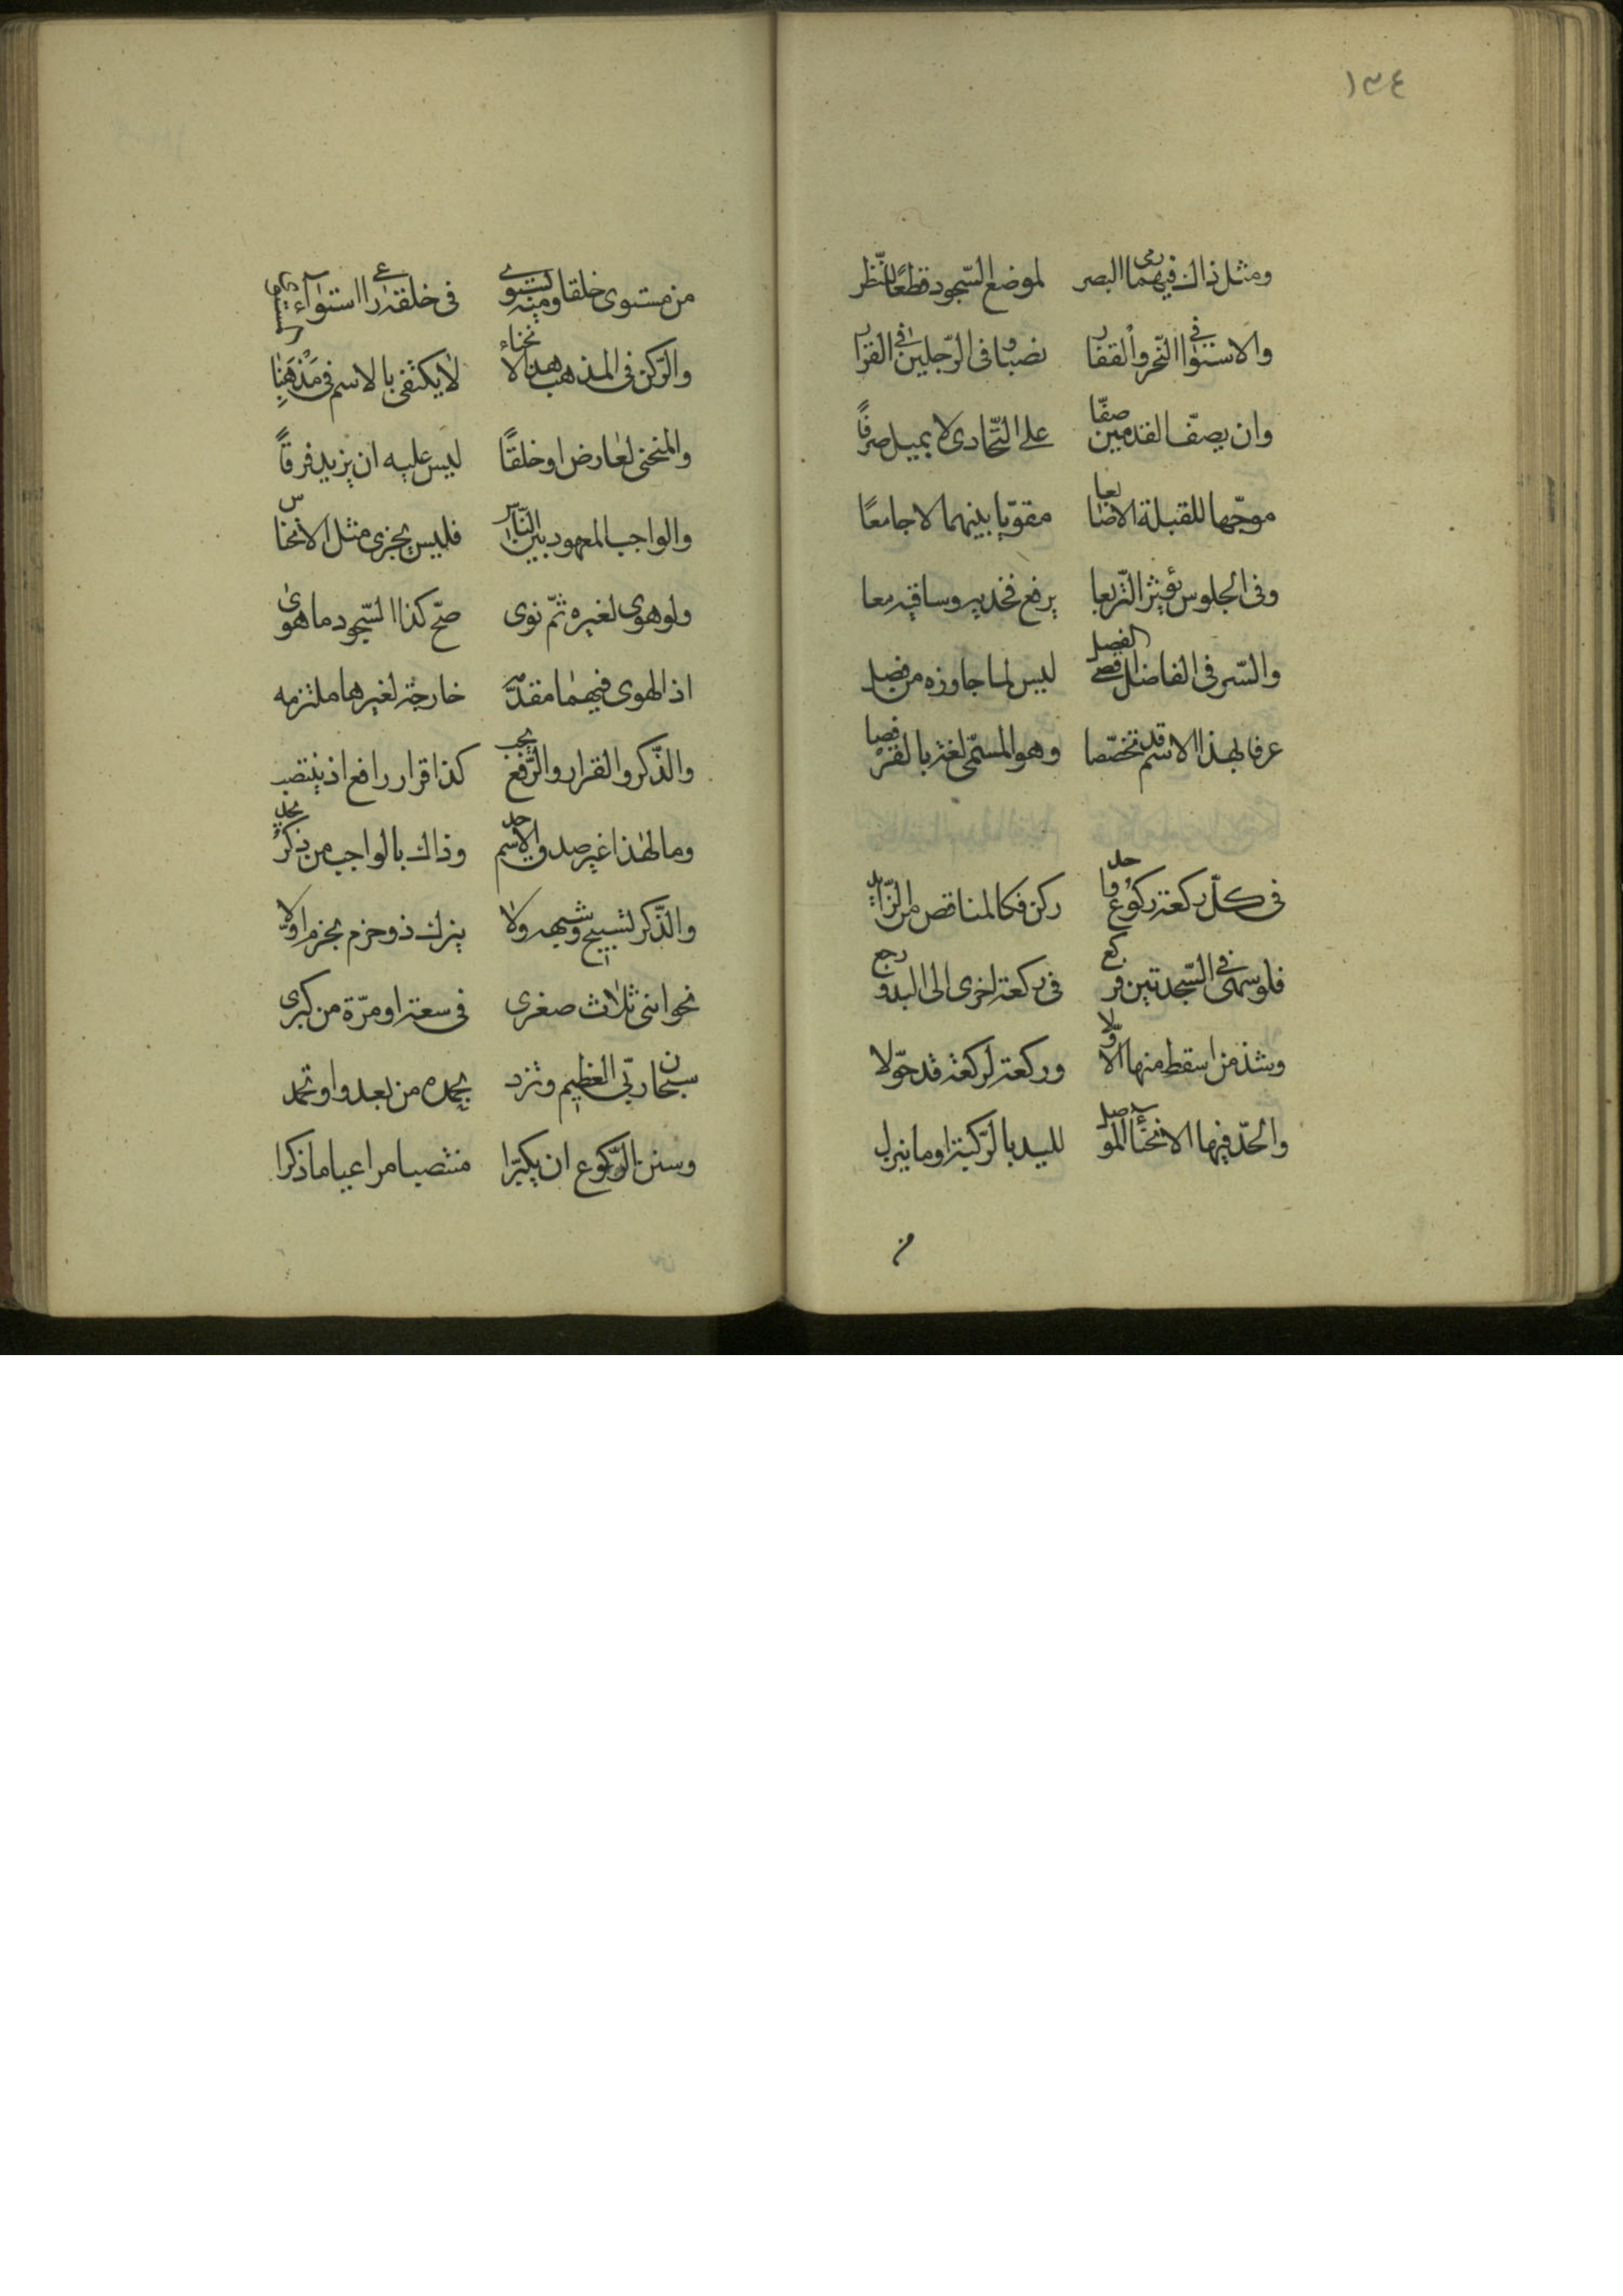 ١٣٤
ومثل ذاك فيهما رمي البصر لموضع السّجود قطعًا للنّظر
والاستوا في النّحر والفقار نصبا وفي الرّجلين في القرار
وان يصفّ القدمين صفّا على التّحاذى لا يميل حرفًا
موجّها للقبلة الاصابعا مقوّبا بينهما لا جامعًا
وفى الجلوس يؤثر التّربعا يرفع فخذيه وساقيه معا
والسّر فى الفاضل قصر الفضل ليس لما جاوزه من فضل
عرفا بهذا الاسم قد تخصّصا وهو المسمّى لغة بالقرفصا
فى كلّ ركعة ركوع واحد ركن فكالمناقص من الزّايد
فلو سهى فى السّجدتين فركع فى ركعة اخرى الى البدو رجع
وشذ من اسقط منها الاوّلا وركعة لركعة قد حوّلا
والحدّ فيها الانحناء الموصل لليد بالرّكبة او ما ينزل
من
من مستوى خلقا ومنه يستوى فى خلقة راعى استوآء المستوى
والرّكن فى المذهب هذا الانحناء لا يكتفى بالاسم فى مذهبنا
والمنحنى لعارض او خلقًا ليس عليه ان يزيد فرقًا
والواجب المعهود بين النّاس فليس يجزى مثل الانخناس
ولو هوى لغيره ثمّ نوى صحّ كذا السّجود ما هوى
اذ الهوى فيهما مقدّمه خارجة لغيرها ملتزمه
والذّكر والقرار والرّفع يجب كذا قرار رافع اذ ينتصب
وما لهذا غير صدق الاسم حد وذاك بالواجب من ذكر يحد
والذّكر تسبيح وشبهه ولا يترك ذو حزم بجزم اوّلا
نحوا ثنى ثلاث صغرى فى سعة او مرّة من كبرى
سبحان ربّى العظيم وتزد بحمده من بعد واو تحمد
وسنن الرّكوع ان يكبّرا منتصبا مراعيا ما ذكرا